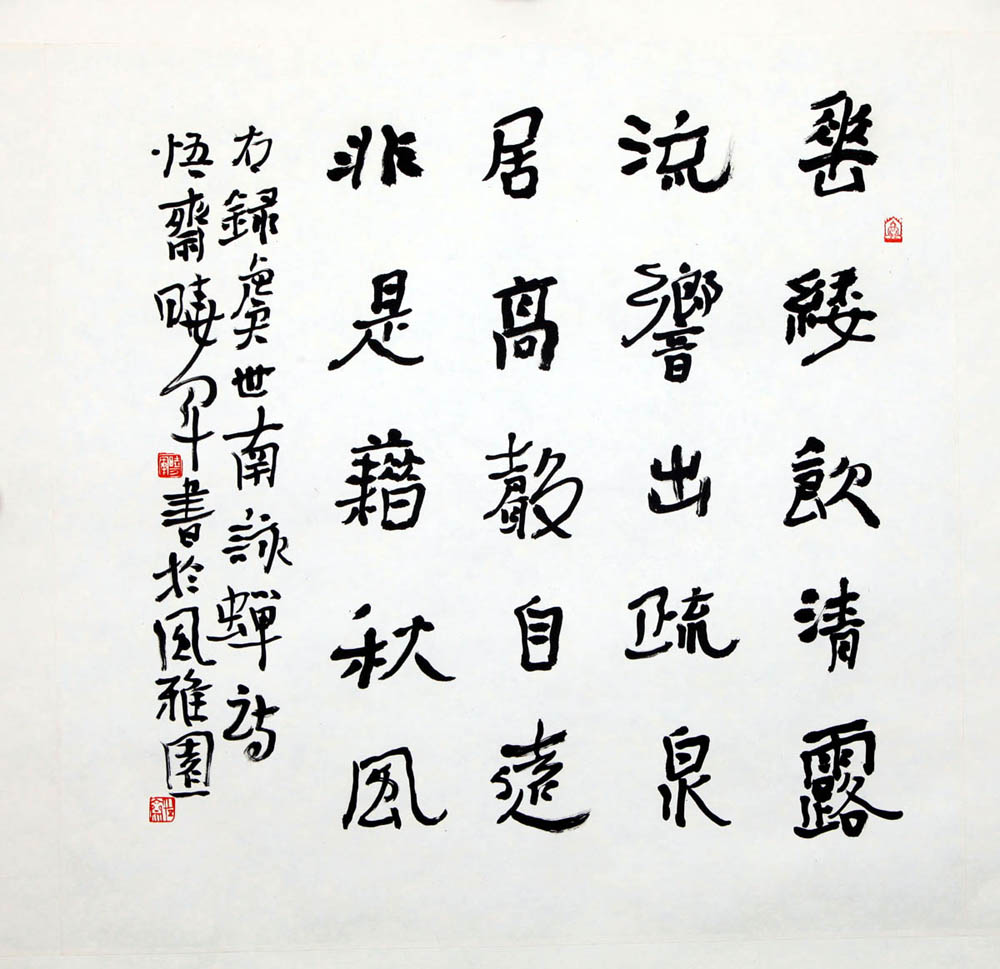 垂緌飲清露
流響出疏泉
居高聲自遠
非是藉秋風
右錄虞世南詠蟬詩
悟齋曉軍書於風雅園